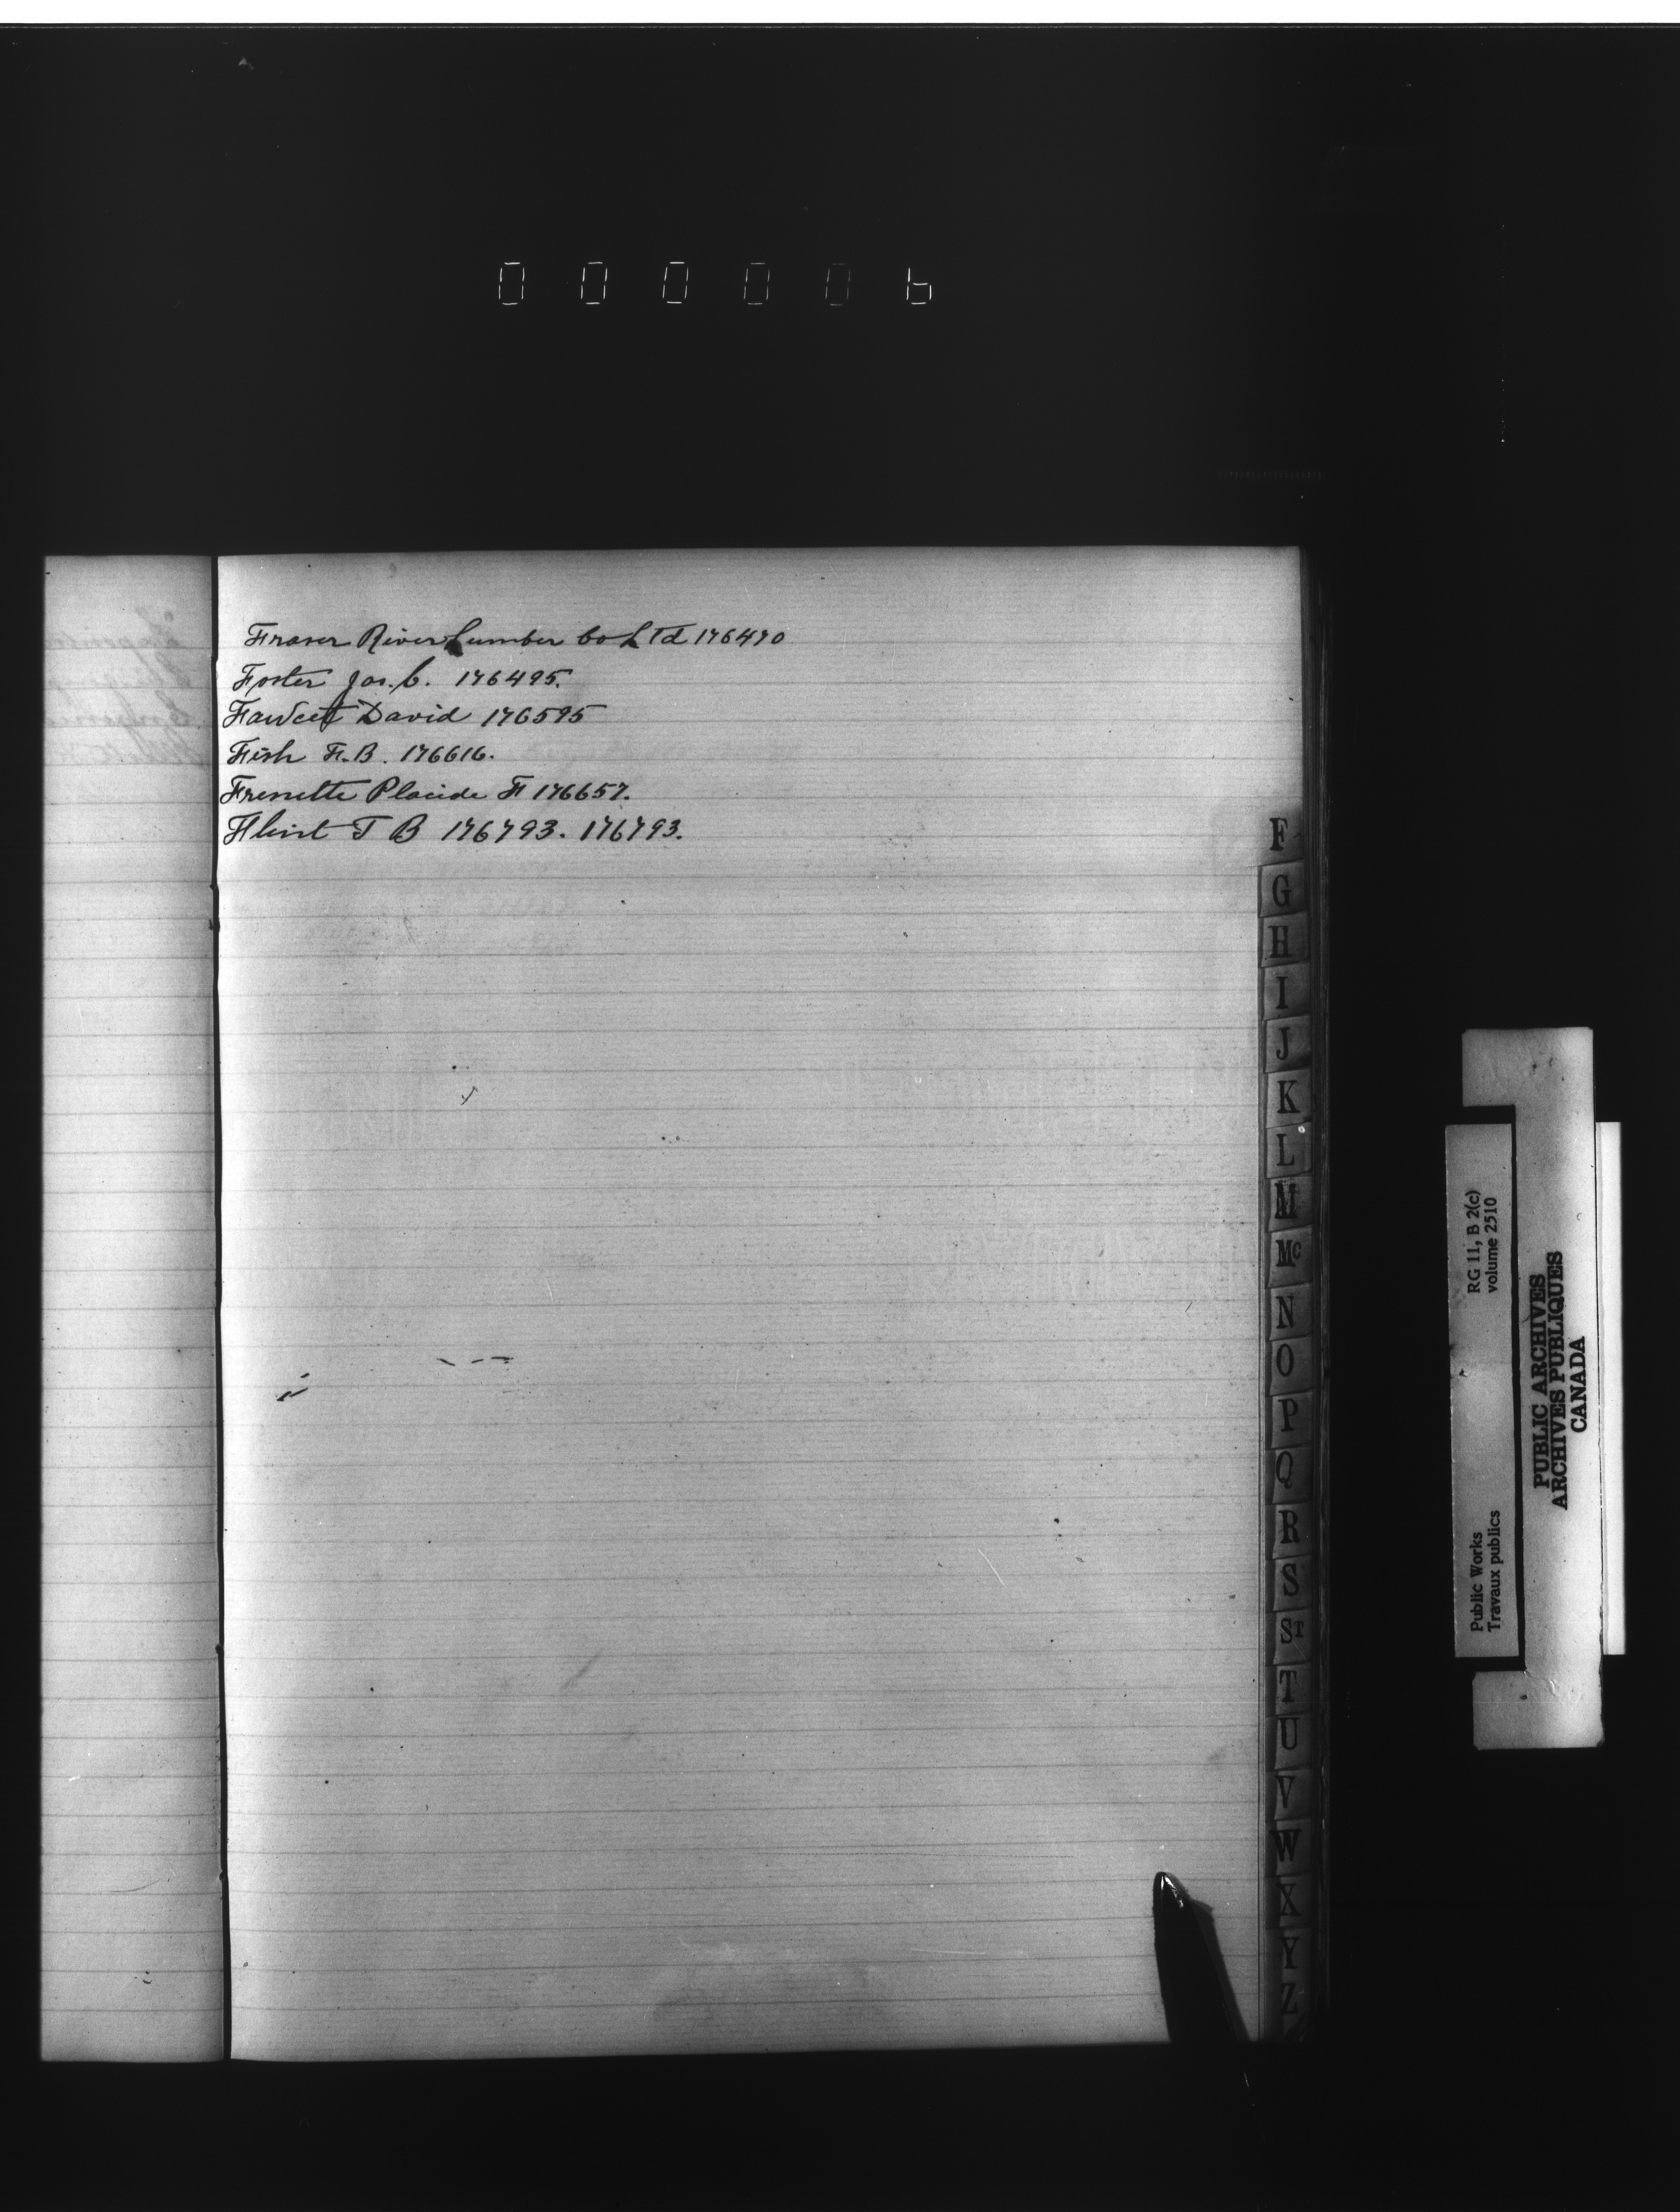 000006
Fraser River Lumber Co Ltd 176470
Foster Jas. C. 176495.
Fawcett David 176595
Fish F. B. 176616.
Frenette Placide F 176657.
Flint T B 176793. 176793.
F
G
H
I
J
K
L
M
Mc
N
O
P
Q
R
S
ST
T
U
V
W
X
Y
Z
Public Works
Travaux publics
RG 11, B 2(c)
volume 2510
PUBLIC ARCHIVES
ARCHIVES PUBLIQUES
CANADA